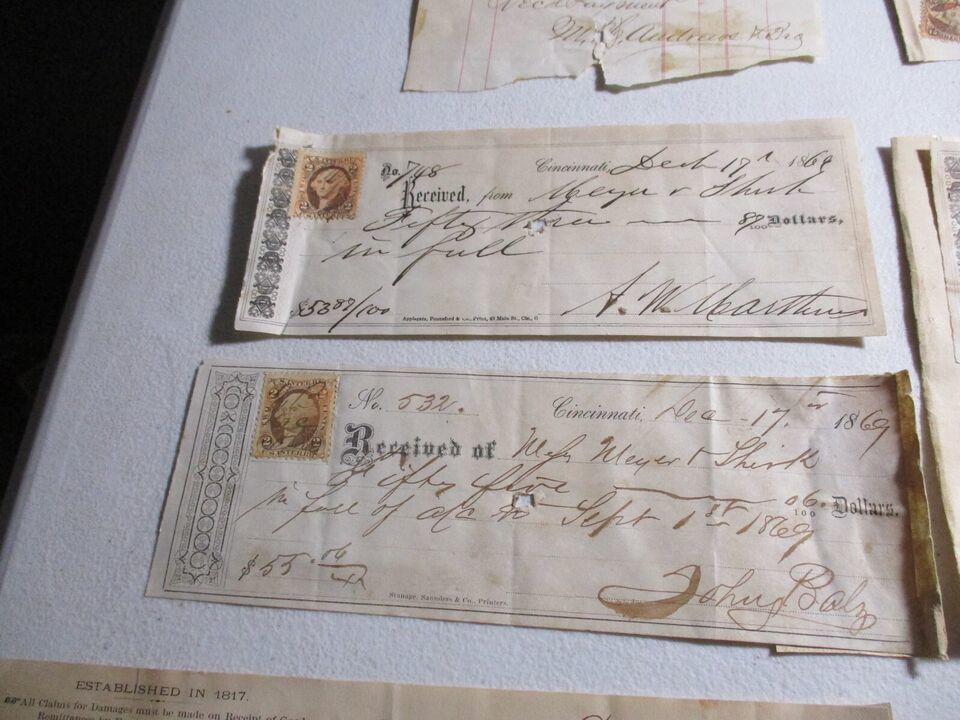 M. J. Andrews & Bro
No. 748 Cincinnati, Dec 17th 1869
Received, from Meyer & Shirk
Fifty three 87/100 Dollars,
in full
$53 87/100
Applegate, Pounsford & Co., Print, 43 Main St., Cin.
U.S. INTER. REV.
2 2
No. 532. Cincinnati, Dec 17th 1869
Received of Mess Meyer & Shirk
Fifty five 06/100 Dollars.
in full of a/c to Sept 1st 1869
$55.06
John Balz
Stanage, Saunders & Co., Printers.
ESTABLISHED IN 1817.
All Claims for Damages must be made on Receipt of